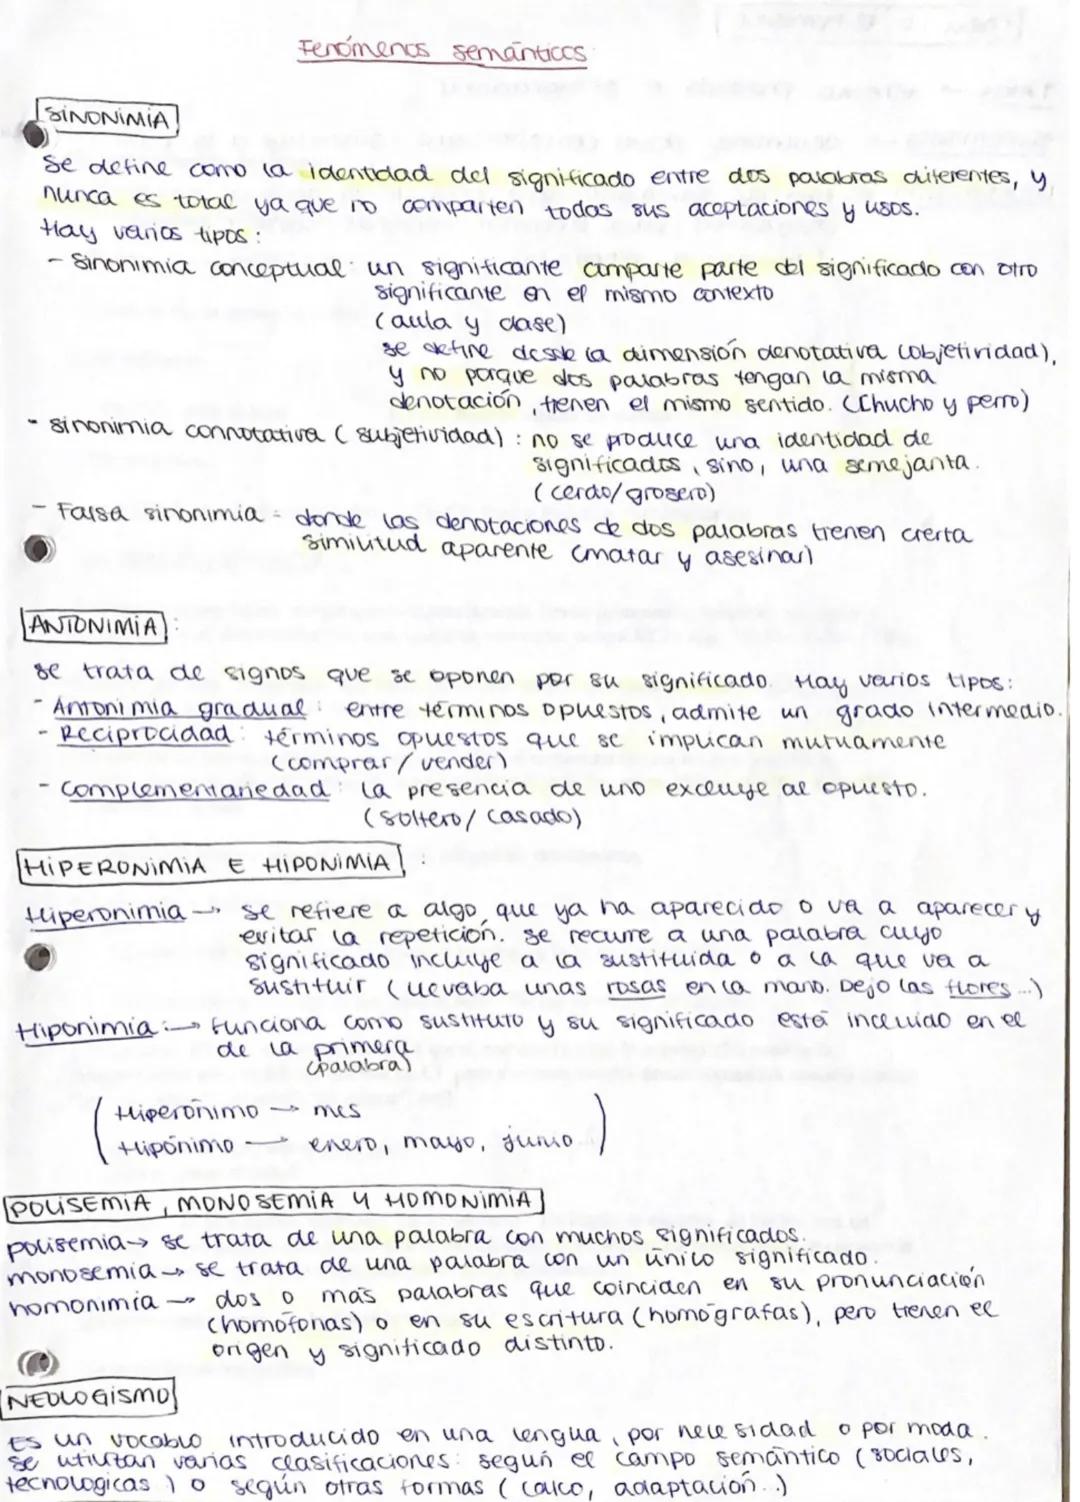 Fenómenos semánticos
SINONIMIA
Se define como la identidad del significado entre dos palabras diferentes, y
nunca es total ya que no comparten todas sus aceptaciones y usos.
Hay varios tipos:
- Sinonimia conceptual: un significante comparte parte del significado con otro
significante en el mismo contexto
(aula y clase)
se define desde la dimensión denotativa (objetividad),
y no porque dos palabras tengan la misma
denotación, tienen el mismo sentido. (Chucho y perro)
- sinonimia connotativa (subjetividad): no se produce una identidad de
significados, sino, una semejanta.
(cerdo/grosero)
- Falsa sinonimia = donde las denotaciones de dos palabras tienen cierta
similitud aparente (matar y asesinar)
ANTONIMIA:
se trata de signos que se oponen por su significado. Hay varios tipos:
- Antonimia gradual: entre términos opuestos, admite un grado intermedio.
- Reciprocidad: términos opuestos que se implican mutuamente
(comprar/vender)
- Complementariedad: la presencia de uno excluye al opuesto.
(soltero/casado)
HIPERONIMIA E HIPONIMIA:
Hiperonimia → se refiere a algo que ya ha aparecido o va a aparecer y
evitar la repetición. se recurre a una palabra cuyo
significado incluye a la sustituida o a la que va a
sustituir (llevaba unas rosas en la mano. Dejo las flores...)
Hiponimia: → funciona como sustituto y su significado está incluido en el
de la primera
(palabra)
Hiperónimo → mes
Hipónimo → enero, mayo, junio...
POLISEMIA, MONOSEMIA Y HOMONIMIA
polisemia → se trata de una palabra con muchos significados.
monosemia → se trata de una palabra con un único significado.
homonimia → dos o más palabras que coinciden en su pronunciación
(homófonas) o en su escritura (homógrafas), pero tienen el
origen y significado distinto.
NEOLOGISMO
Es un vocablo introducido en una lengua, por necesidad o por moda.
Se utilitan varias clasificaciones: según el campo semántico (sociales,
tecnologicas) o según otras formas (calco, adaptación...)